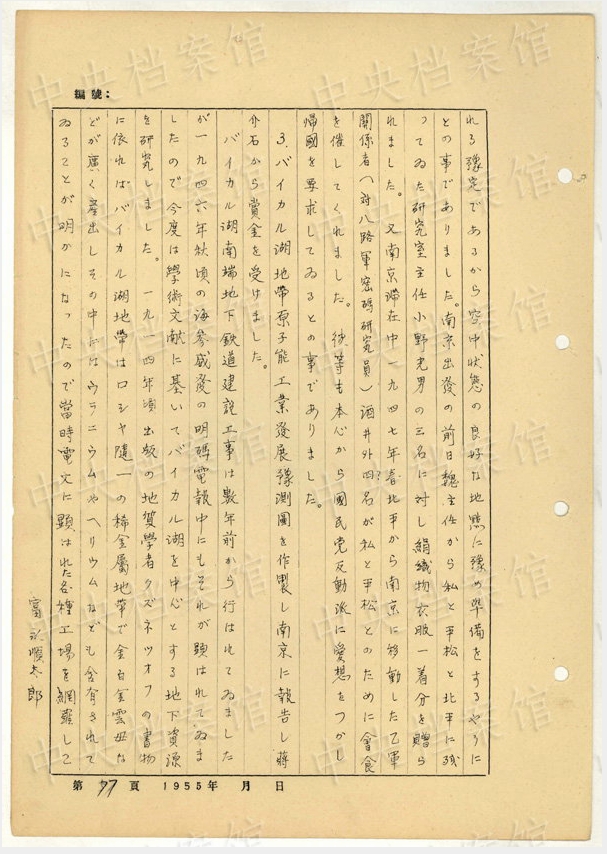 編號：
れる豫定であるから空中状態の良好な地點に豫め準備をするやうに
との事でありました。南京出發の前日魏主任から私と平松と北平に残
ってゐた研究室主任小野光男の三名に対し絹織物衣服一着分を贈ら
れました。又南京滞在中一九四七年春？北平から南京に移動した乙軍
関係者（対八路軍密碼研究員）酒井外四名が私と平松とのために會食
を催してくれました。彼等も本心から國民党反動派に愛想をつかし
帰國を要求してゐるとの事でありました。
3．バイカル湖地帯原子能工業發展豫測圖を作製し南京に報告し蔣
介石から賞金を受けました。
バイカル湖南端地下鉄道建設工事は数年前から行はれてゐました
が一九四六年秋頃の海参威發の明碼電報中にもそれが顕はれてゐま
したので今度は學術文献に基いてバイカル湖を中心とする地下資源
を研究しました。一九一四年頃出版の地質學者クズネツオフの書物
に依ればバイカル湖地帯はロシヤ随一の稀金屬地帯で金白金雲母な
どが廣く産出しその中にはウラニウムやヘリウムなども含有されて
ゐることが明かになったので當時電文に顕はれた各種工場を網羅して
富永順太郎
第77頁 1955年 月 日
中央档案馆